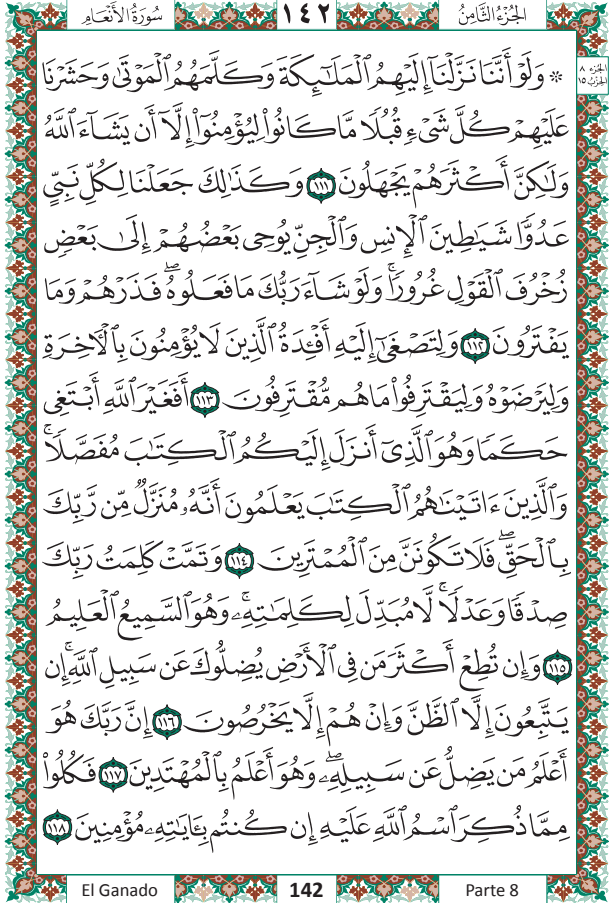 سُورَةُ الأَنْعَامِ ١٤٢ الجُزْءُ الثَّامِنُ
الجزء ٨
الحزب ١٥
۞ وَلَوۡ أَنَّنَا نَزَّلۡنَآ إِلَيۡهِمُ ٱلۡمَلَٰٓئِكَةَ وَكَلَّمَهُمُ ٱلۡمَوۡتَىٰ وَحَشَرۡنَا
عَلَيۡهِمۡ كُلَّ شَيۡءٖ قُبُلٗا مَّا كَانُواْ لِيُؤۡمِنُوٓاْ إِلَّآ أَن يَشَآءَ ٱللَّهُ
وَلَٰكِنَّ أَكۡثَرَهُمۡ يَجۡهَلُونَ ١١١ وَكَذَٰلِكَ جَعَلۡنَا لِكُلِّ نَبِيٍّ
عَدُوّٗا شَيَٰطِينَ ٱلۡإِنسِ وَٱلۡجِنِّ يُوحِي بَعۡضُهُمۡ إِلَىٰ بَعۡضٖ
زُخۡرُفَ ٱلۡقَوۡلِ غُرُورٗاۚ وَلَوۡ شَآءَ رَبُّكَ مَا فَعَلُوهُۖ فَذَرۡهُمۡ وَمَا
يَفۡتَرُونَ ١١٢ وَلِتَصۡغَىٰٓ إِلَيۡهِ أَفۡـِٔدَةُ ٱلَّذِينَ لَا يُؤۡمِنُونَ بِٱلۡأٓخِرَةِ
وَلِيَرۡضَوۡهُ وَلِيَقۡتَرِفُواْ مَا هُم مُّقۡتَرِفُونَ ١١٣ أَفَغَيۡرَ ٱللَّهِ أَبۡتَغِي
حَكَمٗا وَهُوَ ٱلَّذِيٓ أَنزَلَ إِلَيۡكُمُ ٱلۡكِتَٰبَ مُفَصَّلٗاۚ
وَٱلَّذِينَ ءَاتَيۡنَٰهُمُ ٱلۡكِتَٰبَ يَعۡلَمُونَ أَنَّهُۥ مُنَزَّلٞ مِّن رَّبِّكَ
بِٱلۡحَقِّۖ فَلَا تَكُونَنَّ مِنَ ٱلۡمُمۡتَرِينَ ١١٤ وَتَمَّتۡ كَلِمَتُ رَبِّكَ
صِدۡقٗا وَعَدۡلٗاۚ لَّا مُبَدِّلَ لِكَلِمَٰتِهِۦۚ وَهُوَ ٱلسَّمِيعُ ٱلۡعَلِيمُ
١١٥ وَإِن تُطِعۡ أَكۡثَرَ مَن فِي ٱلۡأَرۡضِ يُضِلُّوكَ عَن سَبِيلِ ٱللَّهِۚ إِن
يَتَّبِعُونَ إِلَّا ٱلظَّنَّ وَإِنۡ هُمۡ إِلَّا يَخۡرُصُونَ ١١٦ إِنَّ رَبَّكَ هُوَ
أَعۡلَمُ مَن يَضِلُّ عَن سَبِيلِهِۦۖ وَهُوَ أَعۡلَمُ بِٱلۡمُهۡتَدِينَ ١١٧ فَكُلُواْ
مِمَّا ذُكِرَ ٱسۡمُ ٱللَّهِ عَلَيۡهِ إِن كُنتُم بِـَٔايَٰتِهِۦ مُؤۡمِنِينَ ١١٨
El Ganado 142 Parte 8